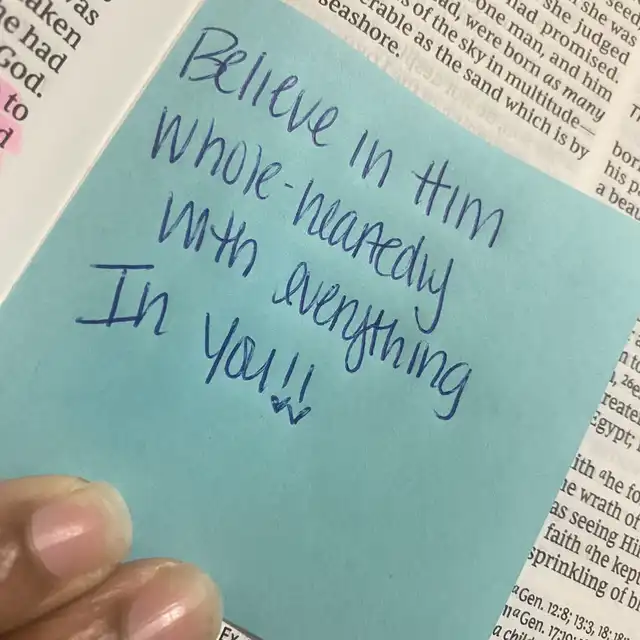 Believe in Him
Whole-heartedly
With everything
In You!!
as
taken
he had
God.
to
d
seashore.
erable as the sand which is by
s of the sky in multitude—
ad, were born as many
one man, and him
had promised.
she judged
n she was
see
born
his p
a bea
Egypt,
ith the
he wrath of
as seeing Hi
faith he kep
sprinkling of b
Gen. 12:8; 13:3, 18;
Gen. 17: